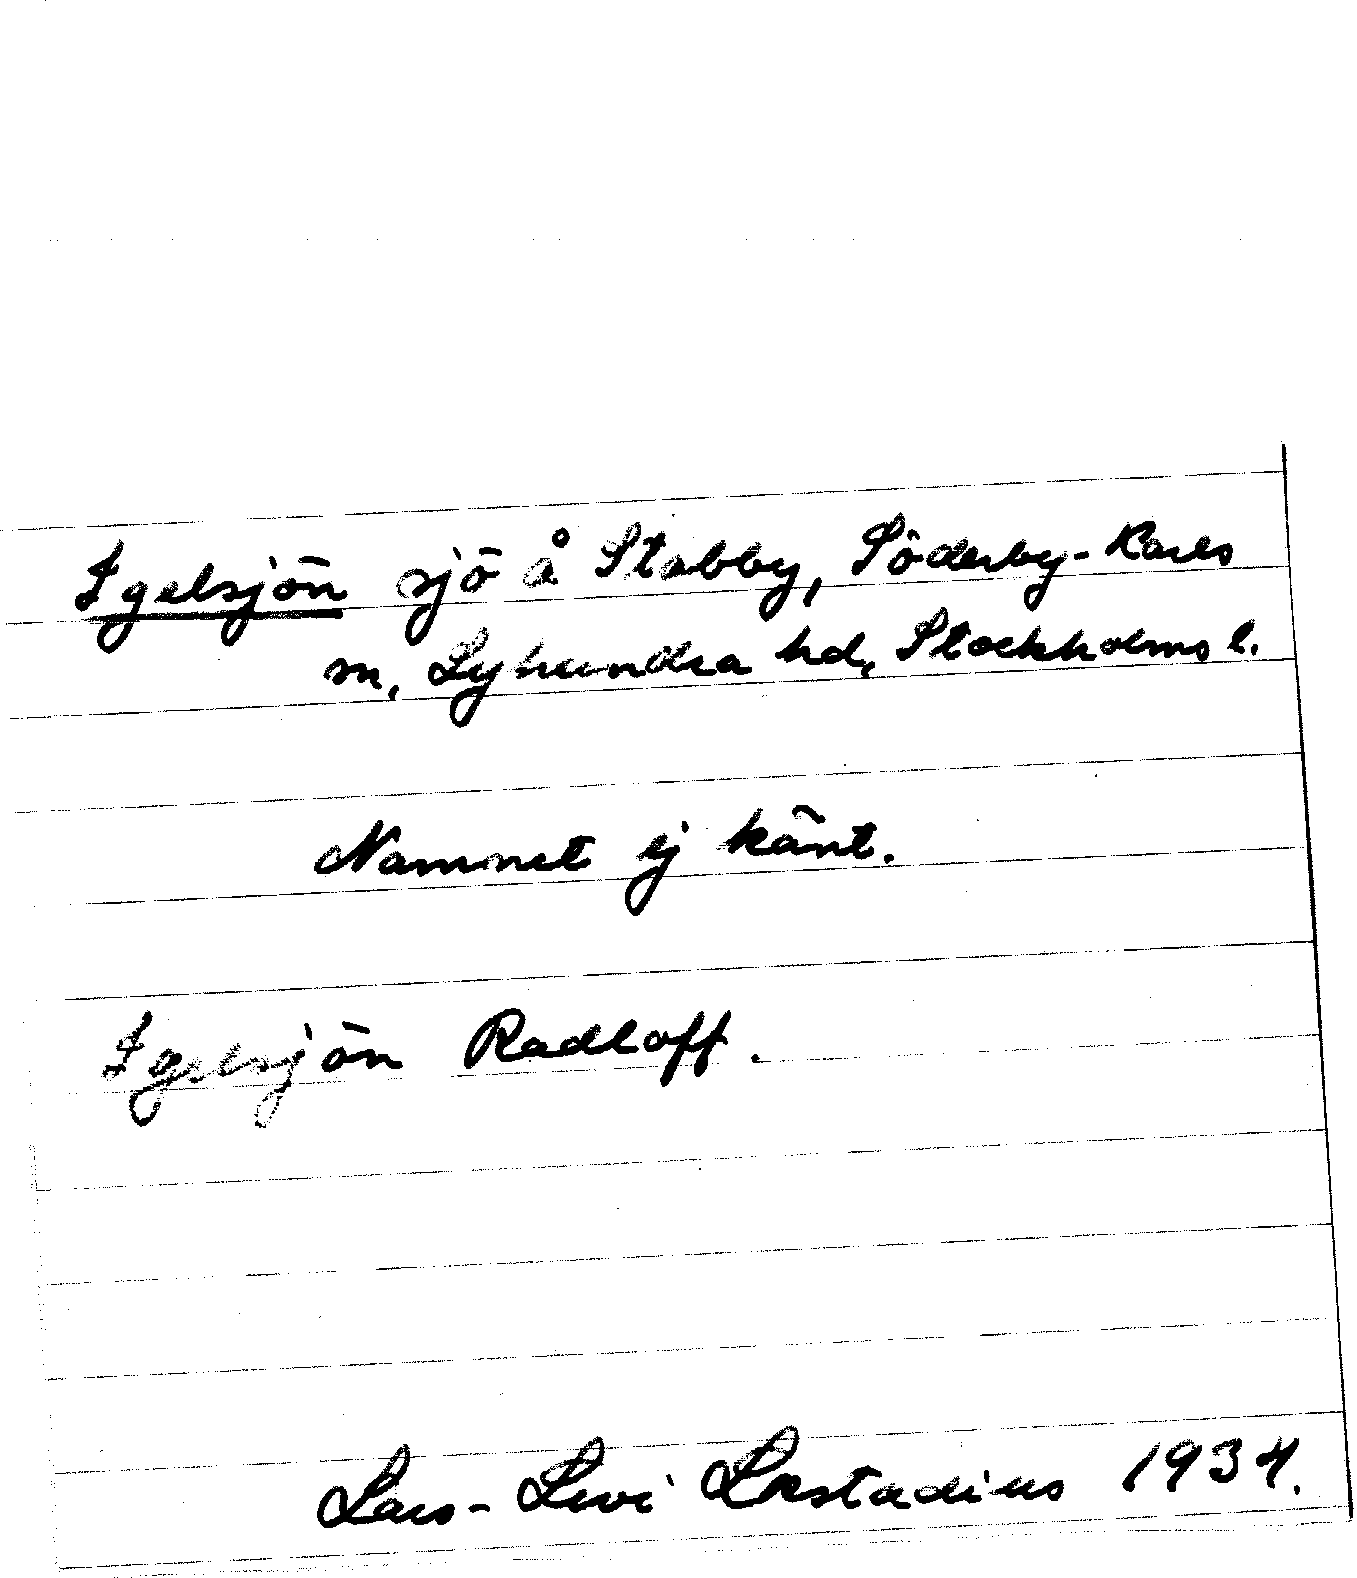 Igelsjön sjö å Stabby, Söderby-Karls
sn, Lyhundra hd, Stockholms l.
Namnet ej känt.
Igelsjön Radloff.
Lars-Levi Læstadius 1934.